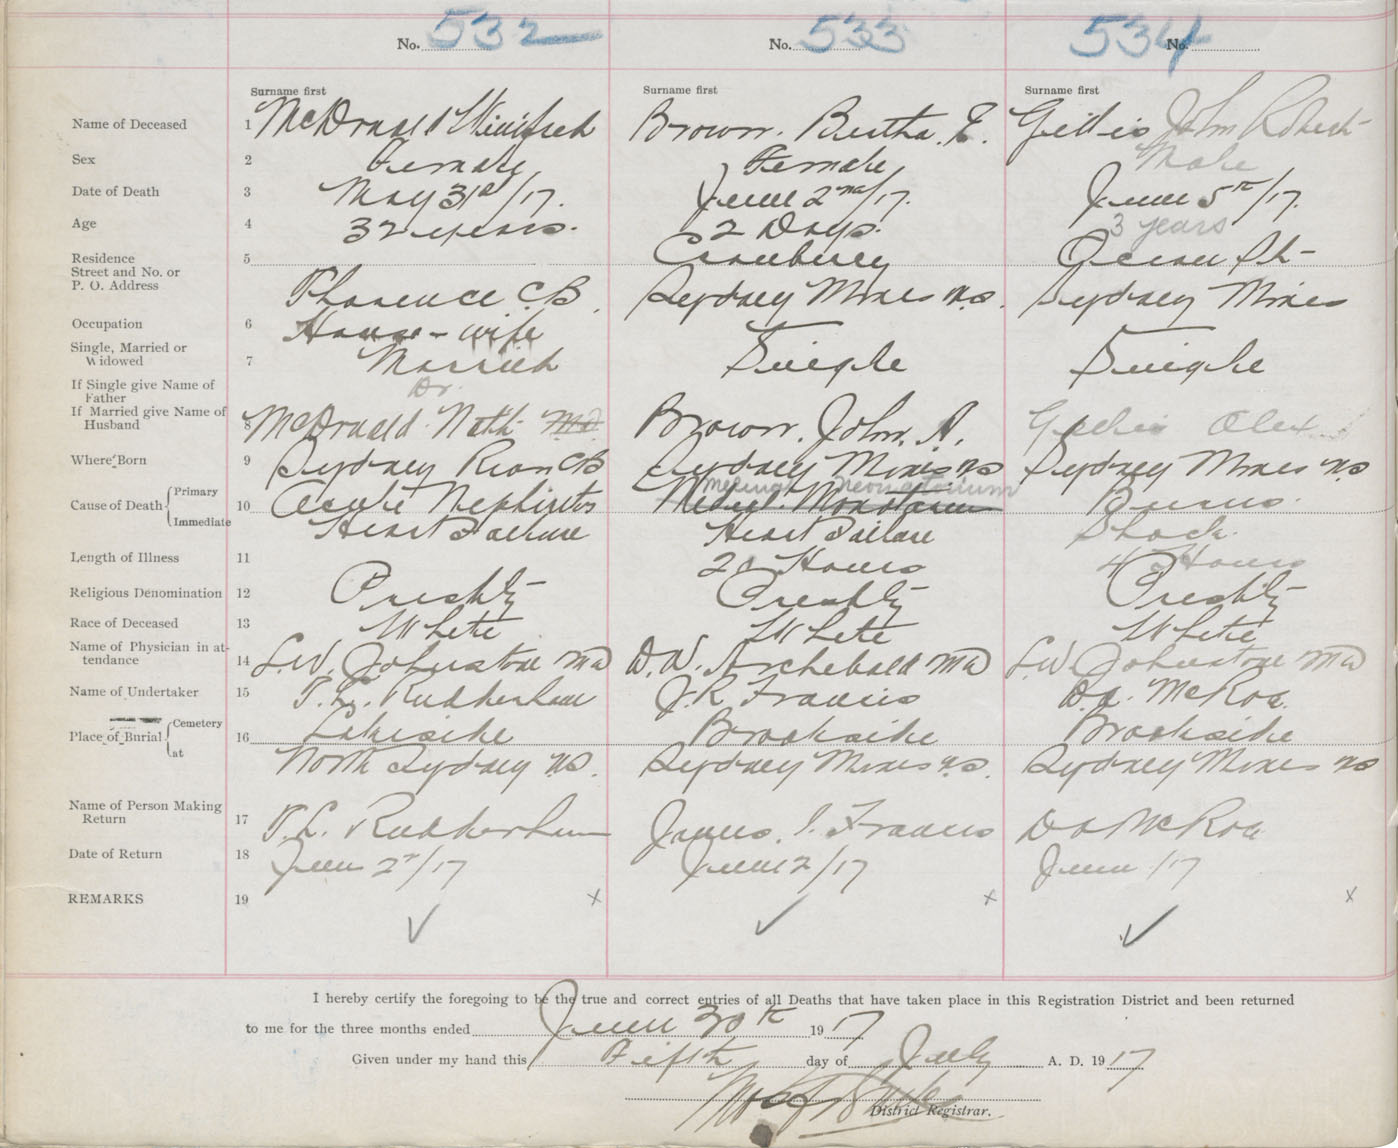 No. 532 No. 533 No. 534
Surname first Surname first Surname first
Name of Deceased 1 McDonald Winifred Brown. Bertha. E. Gillis John Robert
Sex 2 Female Female Male
Date of Death 3 May 31st/17. June 2nd/17. June 5th/17.
Age 4 32 years. 2 Days. 3 years
Residence 5 Cranberry Ocean St
Street and No. or
P. O. Address Florence CB. Sydney Mines N.S. Sydney Mines
Occupation 6 House-wife
Single, Married or
Widowed 7 Married Single Single
If Single give Name of
Father Dr
If Married give Name of
Husband 8 McDonald Nath. MD Brown. John. A. Alex
Where Born 9 Sydney River CB Sydney Mines NS Sydney Mines NS
Cause of Death Primary 10 Acute Nephritis Neonatorium Burns.
Immediate Heart Failure Heart Failure Shock.
Length of Illness 11 20 Hours 4 Hours
Religious Denomination 12 Presbty Presbty Presbty
Race of Deceased 13 White White White
Name of Physician in at-
tendance 14 L.W. Johnstone MD D.W. Archibald MD L.W. Johnstone MD
Name of Undertaker 15 T.L. Rudderham J.R. Francis D.A. McRae.
Place of Burial Cemetery 16 Lakeside Brookside Brookside
at North Sydney NS. Sydney Mines N.S. Sydney Mines NS
Name of Person Making
Return 17 T.L. Rudderham James. Francis D A McRae
Date of Return 18 June 2/17 June 2/17 June /17
REMARKS 19 x x x
✓ ✓ ✓
I hereby certify the foregoing to be the true and correct entries of all Deaths that have taken place in this Registration District and been returned
to me for the three months ended June 30th 1917
Given under my hand this Fifth day of July A. D. 1917
District Registrar.